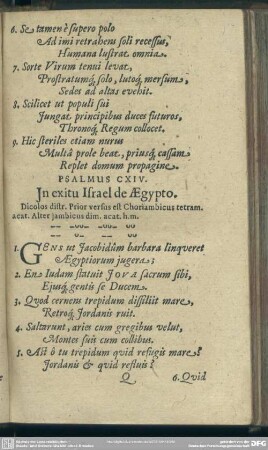 6. Se tamen è supero polo
Ad imi retrahens soli recessus,
Humana lustrat omnia.
7. Sorte Virum tenui levat,
Prostratumq́, solo, lutoq́, mersum,
Sedes ad altas evehit.
8. Scilicet ut populi sui
Jungat principibus duces futuros,
Thronoq́, Regum collocet.
9. Hic steriles etiam nurus
Multâ prole beat, priusq́, cassam
Replet domum propagine.
PSALMUS CXIV.
In exitu Israel de Ægypto.
Dicolos distr. Prior versus est Choriambicus tetram.
acat. Alter jambicus dim. acat. h.m.
1. GENS ut Jacobidûm barbara linqveret
Ægyptiorum jugera;
2. En Iudam statuit JOVA sacrum sibi,
Ejusq́, gentis se Ducem.
3. Qvod cernens trepidum dissiliit mare,
Retroq́, Jordanis ruit.
4. Saltarunt, aries cum gregibus velut,
Montes suis cum collibus.
5. Ast ô tu trepidum qvid refugis mare?
Jordanis & qvid refluis?
Q
6. Qvid